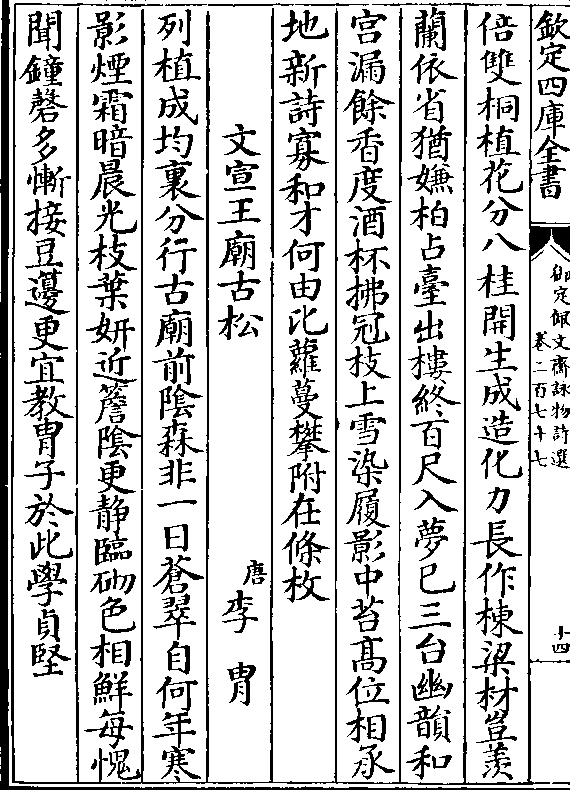 欽定四庫全書
御定佩文齋詠物詩選
卷二百七十七
十四
倍雙桐植花分八桂開生成造化力長作棟梁材豈羡
蘭依省猶嫌柏占臺出樓終百尺入夢已三台幽韻和
宮漏餘香度酒杯拂冠枝上雪染履影中苔高位相承
地新詩寡和才何由比蘿蔓攀附在條枚
文宣王廟古松
唐李胄
列植成均裏分行古廟前陰森非一日蒼翠自何年寒
影煙霜暗晨光枝葉妍近簷陰更靜臨砌色相鮮每愧
聞鐘磬多慚接豆籩更宜教胄子於此學貞堅